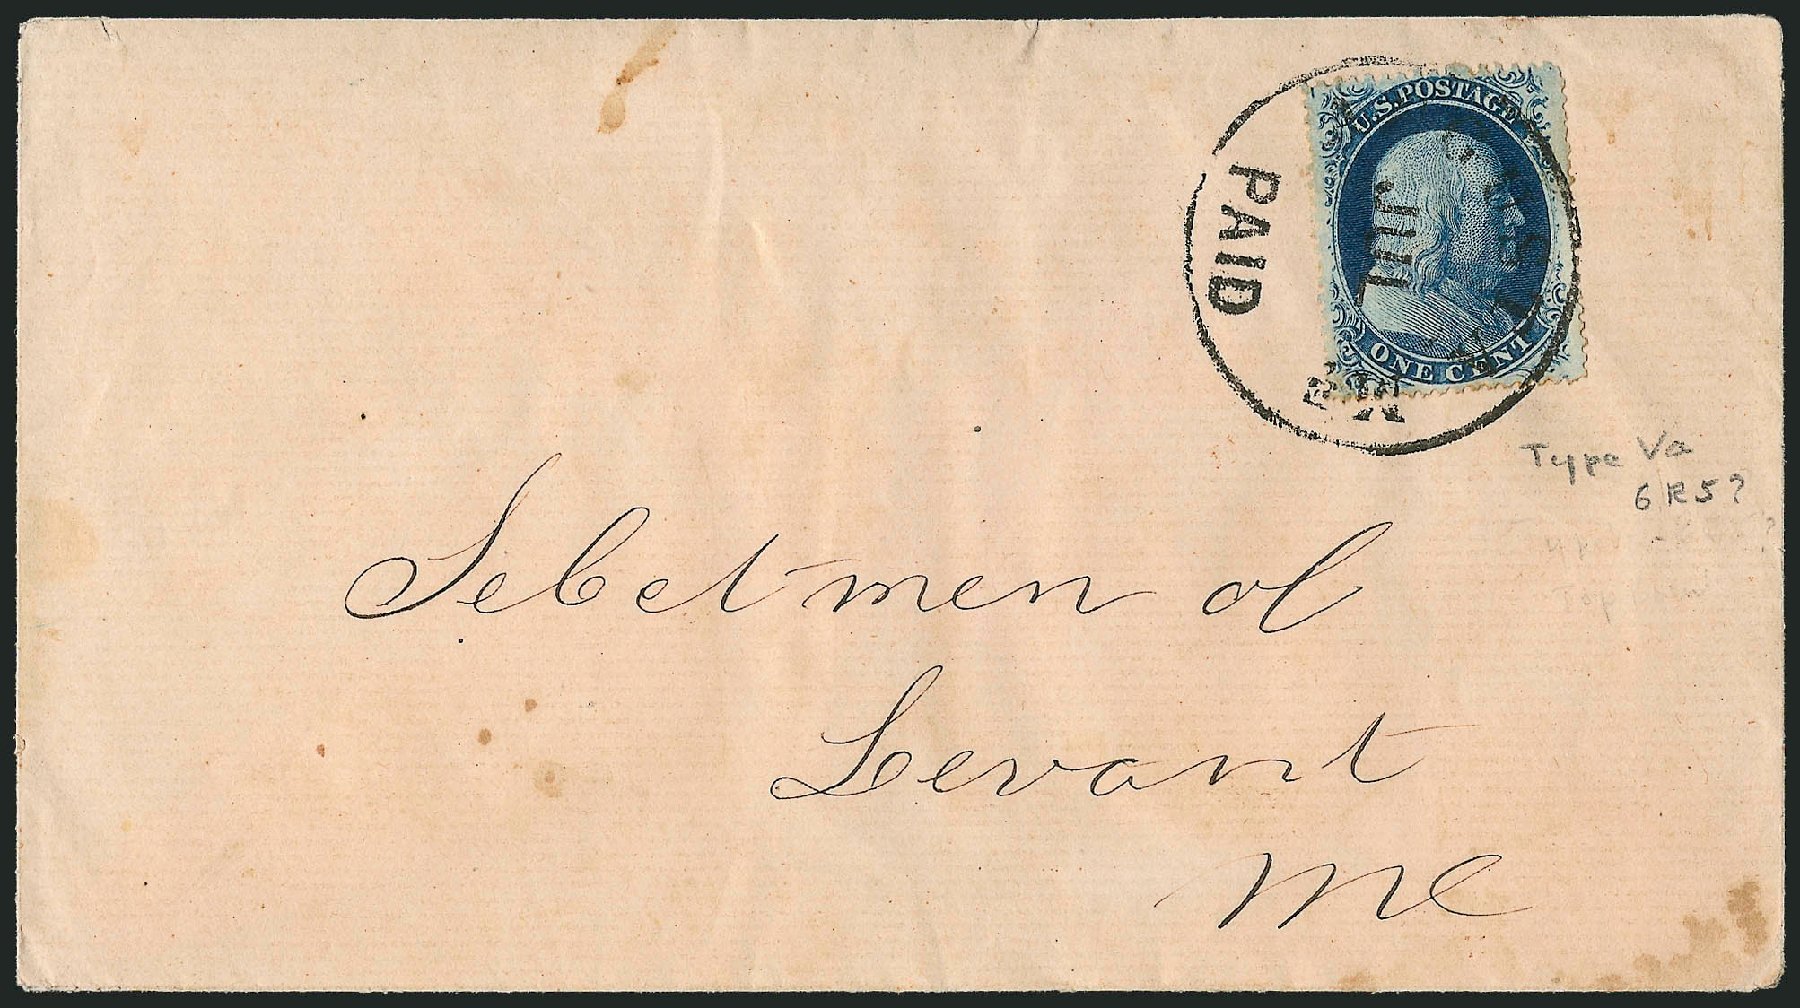 U.S. POSTAGE
ONE CENT
PAID
JUL
Me
Type Va
6R5?
Selectmen of
Levant
Me